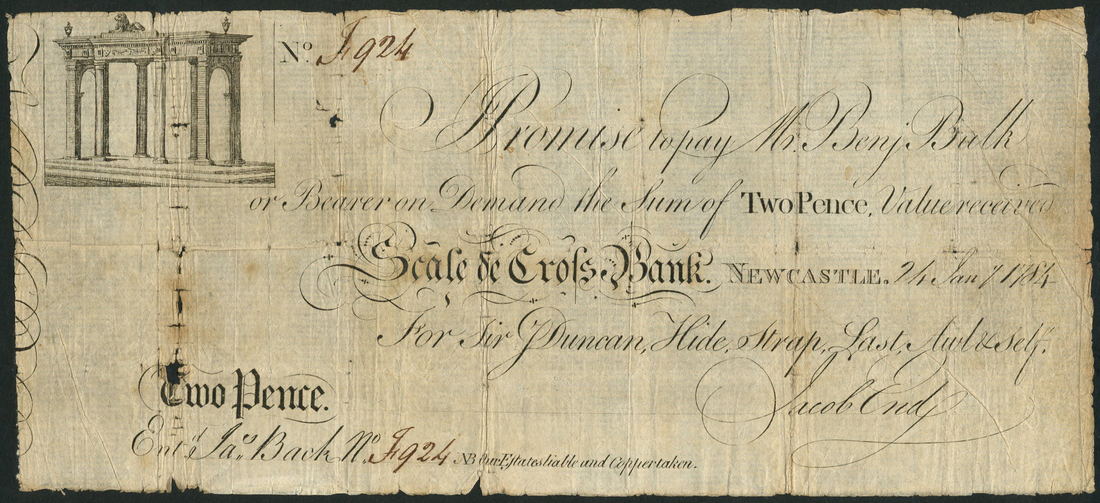 No. F924
I Promise to pay Mr. Benj. Bulk
or Bearer on Demand the Sum of Two Pence, Value received
Scale de Croſs Bank. Newcastle. 24 Jany 1784
For Sir J Duncan, Hide, Strap, Last, Awl & Self.
Jacob End
Two Pence.
Entd. Jas. Back No. F924 NB Our Estates liable and Copper taken.